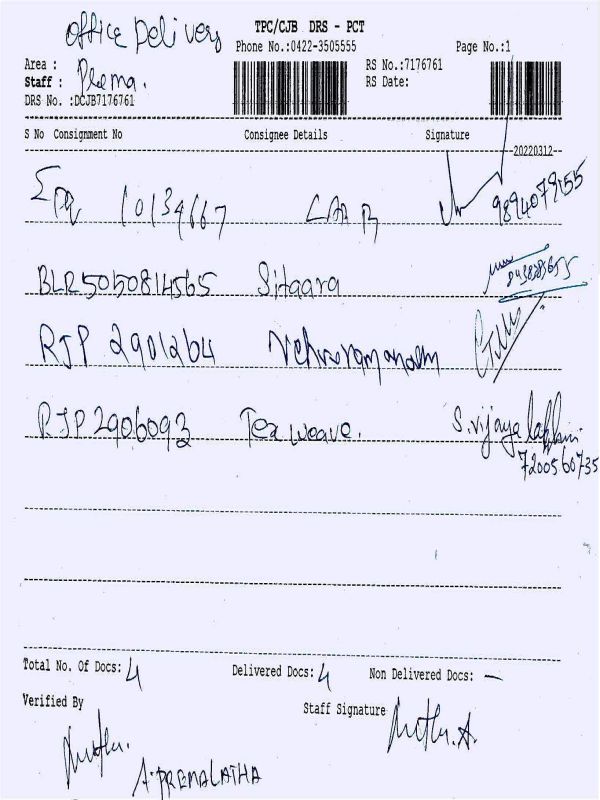 office Delivery
TPC/CJB DRS - PCT
Phone No.:0422-3505555 Page No.:1
Area : RS No.:7176761
Staff : Prema. RS Date:
DRS No. :DCJB7176761
S No Consignment No Consignee Details Signature
20220312
10134667 9894079155
BLR5050814565 Sitaara
RJP 2901264
RJP2906093 Tex weave. S.vijayalakshmi
7200560735
Total No. Of Docs: 4 Delivered Docs: 4 Non Delivered Docs: -
Verified By Staff Signature
A.PREMALATHA